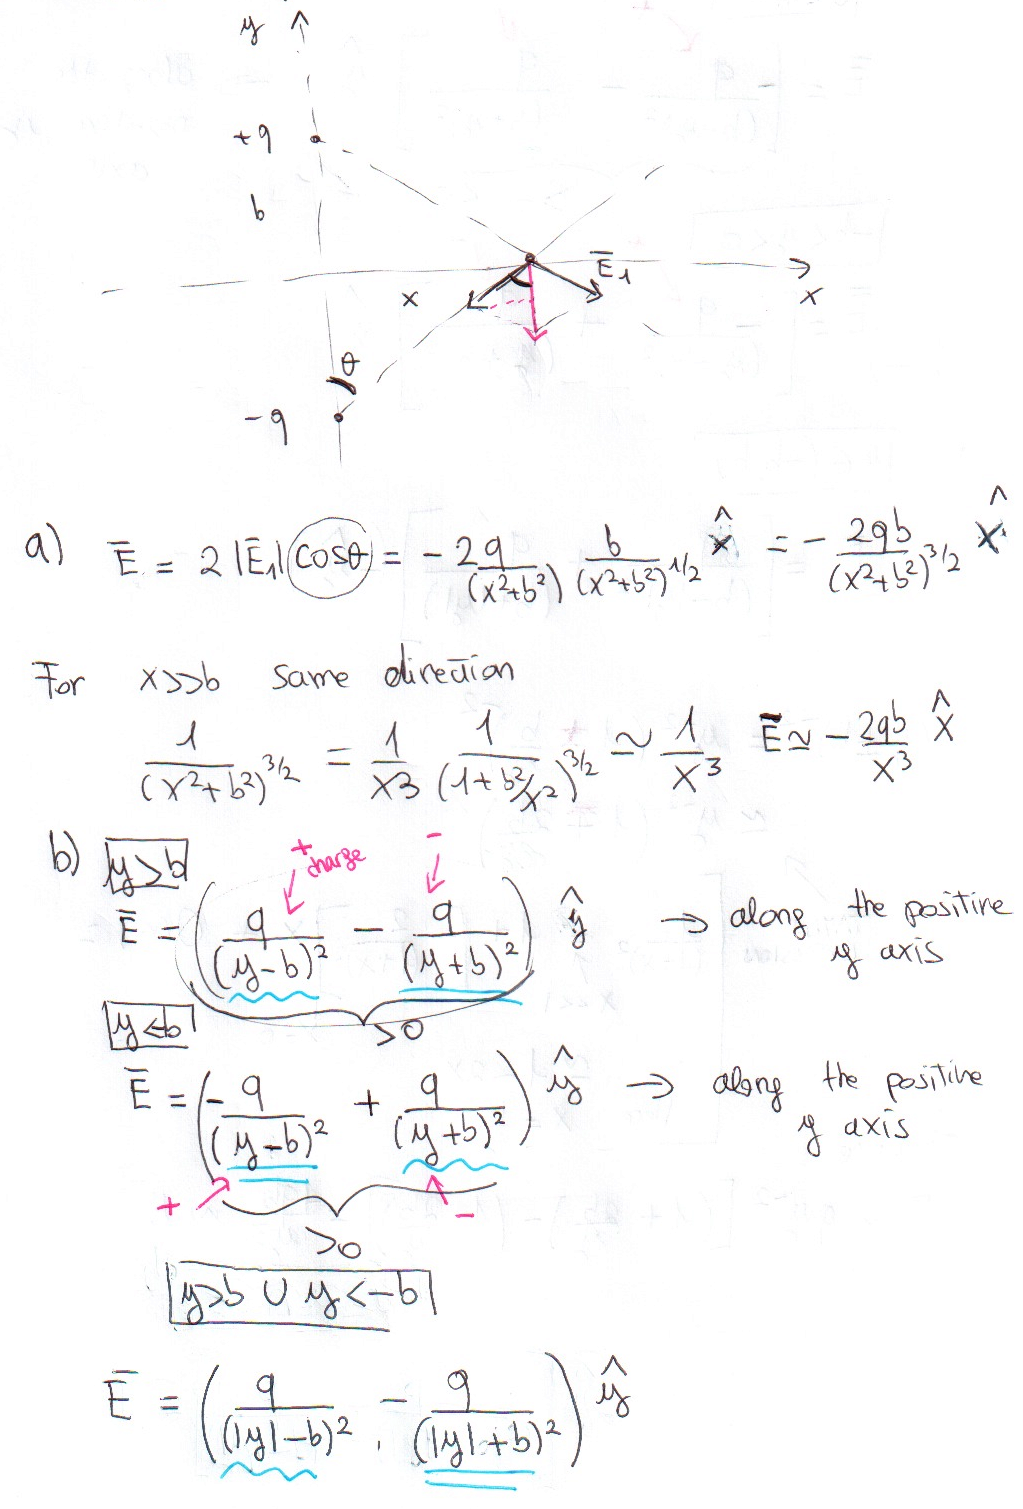 y
+q
b
E̅₁
x
x
θ
-q
a) E̅ = 2 |E̅₁| cosθ = - 2q/(x²+b²) b/(x²+b²)^1/2 x̂ = - 2qb/(x²+b²)^3/2 x̂
For x>>b same direction
1/(x²+b²)^3/2 = 1/x³ 1/(1+b²/x²)^3/2 ≃ 1/x³ E̅ ≃ - 2qb/x³ x̂
b) y>b
+ charge -
E̅ = (q/(y-b)² - q/(y+b)²) ŷ → along the positive y axis
>0
y<-b
E̅ = (-q/(y-b)² + q/(y+b)²) ŷ → along the positive y axis
+ -
>0
y>b ∪ y<-b
E̅ = (q/(|y|-b)² - q/(|y|+b)²) ŷ